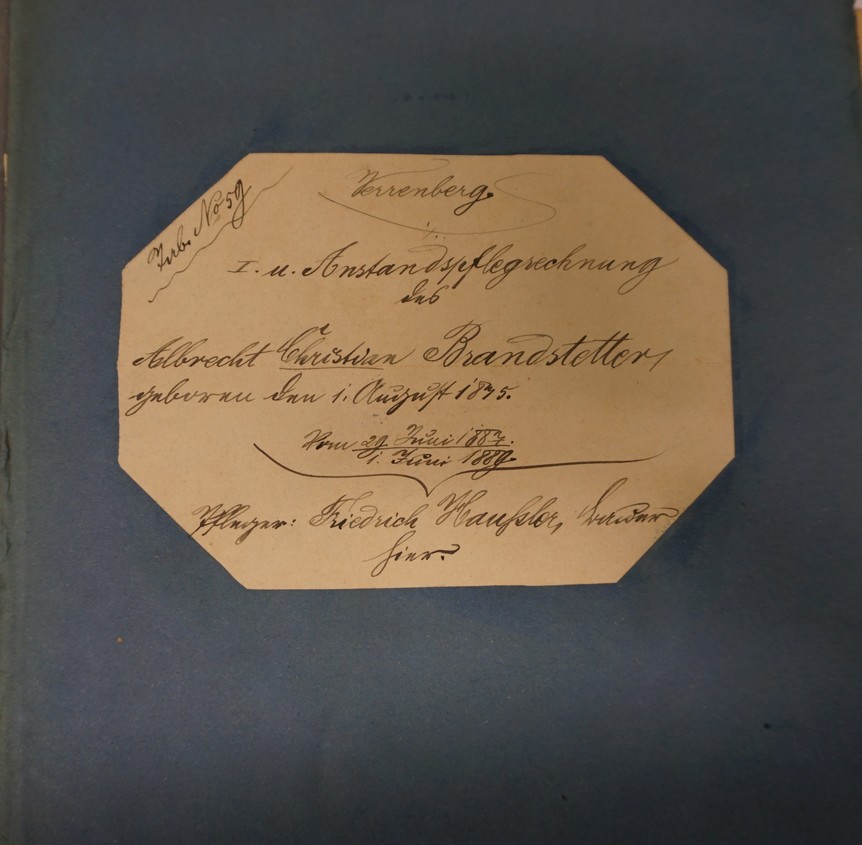 Inv. No 59
Verrenberg.
I. u. Anstandspflegrechnung
des
Albrecht Christian Brandstetter,
geboren den 1. August 1875.
Vom 29 Juni 1887.
1. Juni 1889.
Pfleger: Friedrich Haußler, Bauer
hier.